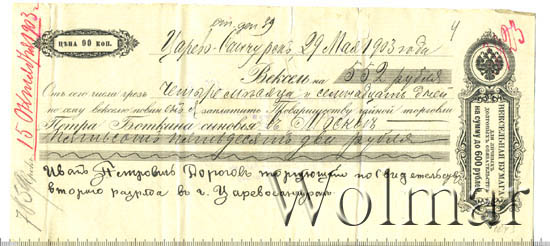 ЦѢНА 90 КОП.
Царев-Санчурск 29 Мая 1903 года
Вексель на 552 рубля
Отъ сего числа чрезъ Четыре месяца и семнадцать дней
по сему векселю повиненъ я заплатить Товариществу чайной торговли
Петра Боткина сыновья в Москве
Пятьсот пятьдесят два рубля
Иван Петрович Дорогов торгующий по свидетельству
второго разряда в г. Царевосанчурске
15 Октября 1903 г.
ВЕКСЕЛЬНАЯ БУМАГА
на сумму до 600 рублей
Wolmar